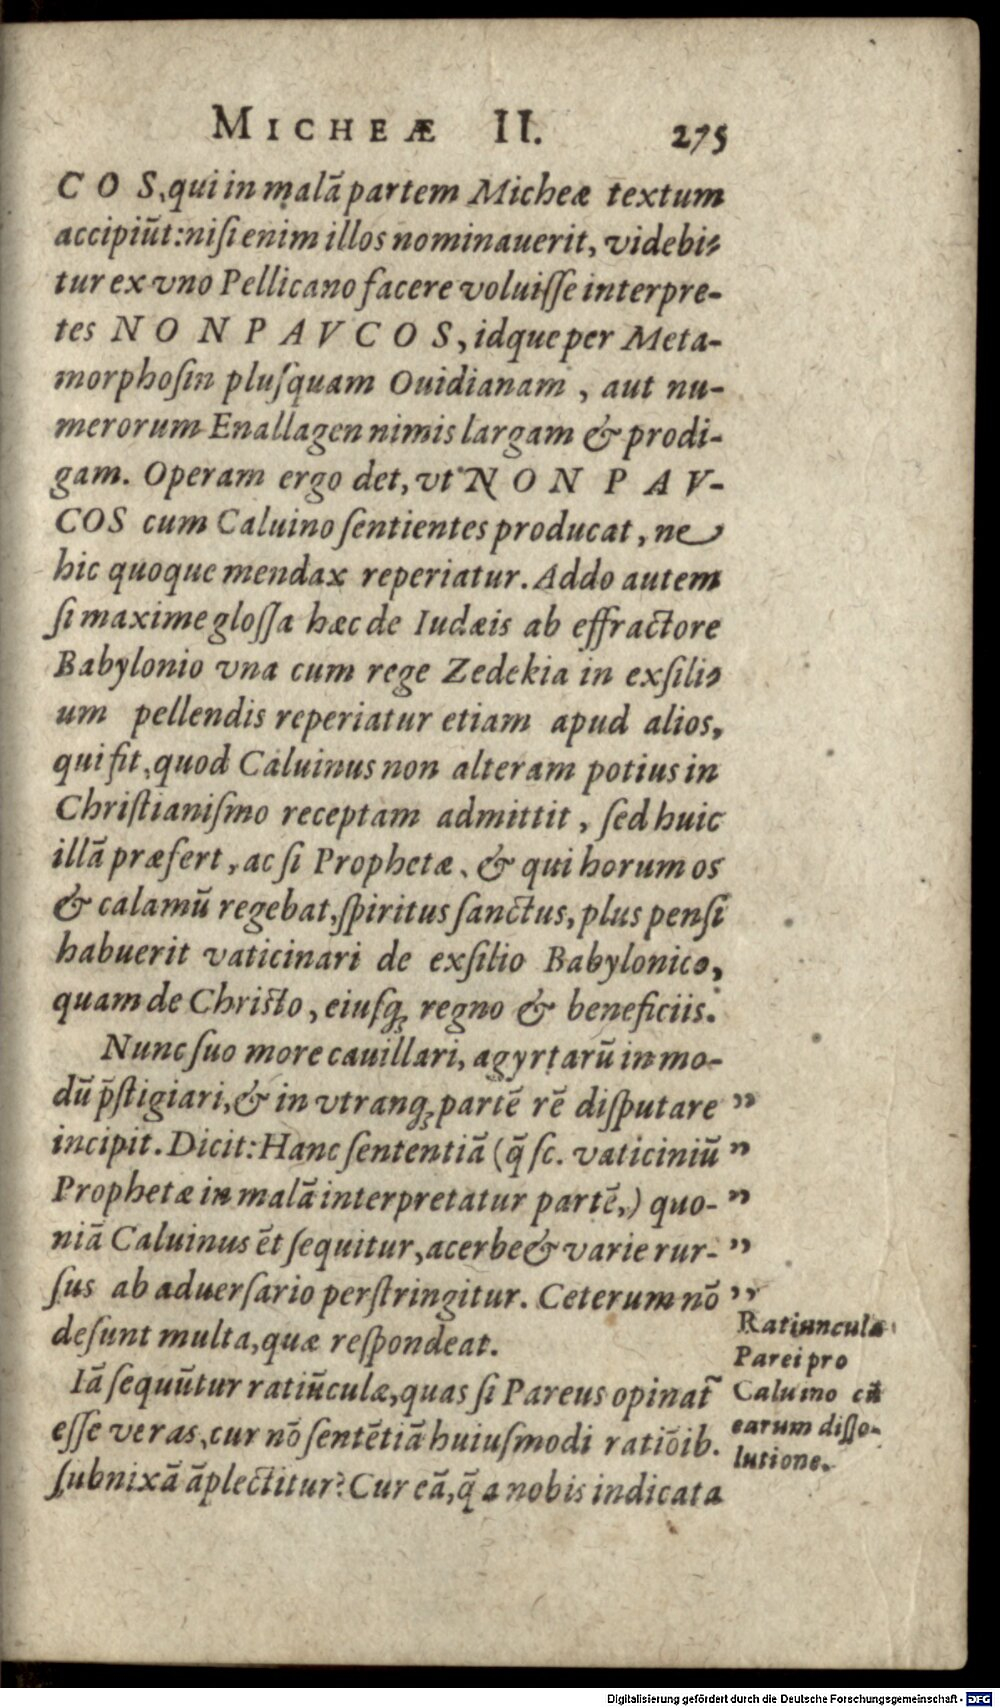 MICHEÆ II. 275
C O S, qui in malã partem Micheæ textum
accipiũt: nisi enim illos nominauerit, videbi-
tur ex vno Pellicano facere voluiſſe interpre-
tes N O N P A V C O S, idque per Meta-
morphoſin pluſquam Ouidianam, aut nu-
merorum Enallagen nimis largam & prodi-
gam. Operam ergo det, vt N O N P A V-
COS cum Caluino ſentientes producat, ne
hic quoque mendax reperiatur. Addo autem
ſi maxime gloſſa hæc de Iudæis ab effractore
Babylonio vna cum rege Zedekia in exſili-
um pellendis reperiatur etiam apud alios,
qui fit, quod Caluinus non alteram potius in
Chriſtianiſmo receptam admittit, ſed huic
illã præfert, ac ſi Prophetæ, & qui horum os
& calamũ regebat, ſpiritus ſanctus, plus penſi
habuerit vaticinari de exſilio Babylonico,
quam de Chriſto, eiuſq; regno & beneficiis.
Nunc ſuo more cauillari, agyrtarũ in mo-
dũ p̃ſtigiari, & in vtranq; partẽ rẽ diſputare ”
incipit. Dicit: Hanc ſententiã (q̃ ſc. vaticiniũ ”
Prophetæ in malã interpretatur partẽ,) quo- ”
niã Caluinus ẽt ſequitur, acerbe & varie rur- ”
ſus ab aduerſario perſtringitur. Ceterum nõ ”
deſunt multa, quæ reſpondeat.
Iã ſequũtur ratiũculæ, quas ſi Pareus opinat̃
eſſe veras, cur nõ ſentẽtiã huiuſmodi ratiõib.
ſubnixã ãplectitur? Cur eã, q̃ a nobis indicata
Ratiuncula
Parei pro
Caluino cũ
earum diſſo-
lutione.
Digitalisierung gefördert durch die Deutsche Forschungsgemeinschaft - DFG